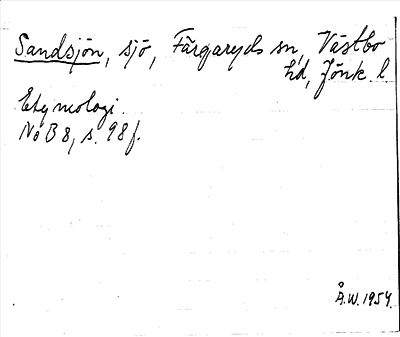 Sandsjön, sjö, Färgaryds sn, Västbo
hd, Jönk. l
Etymologi.
NoB 8, s. 98 f.
Å.W. 1954.